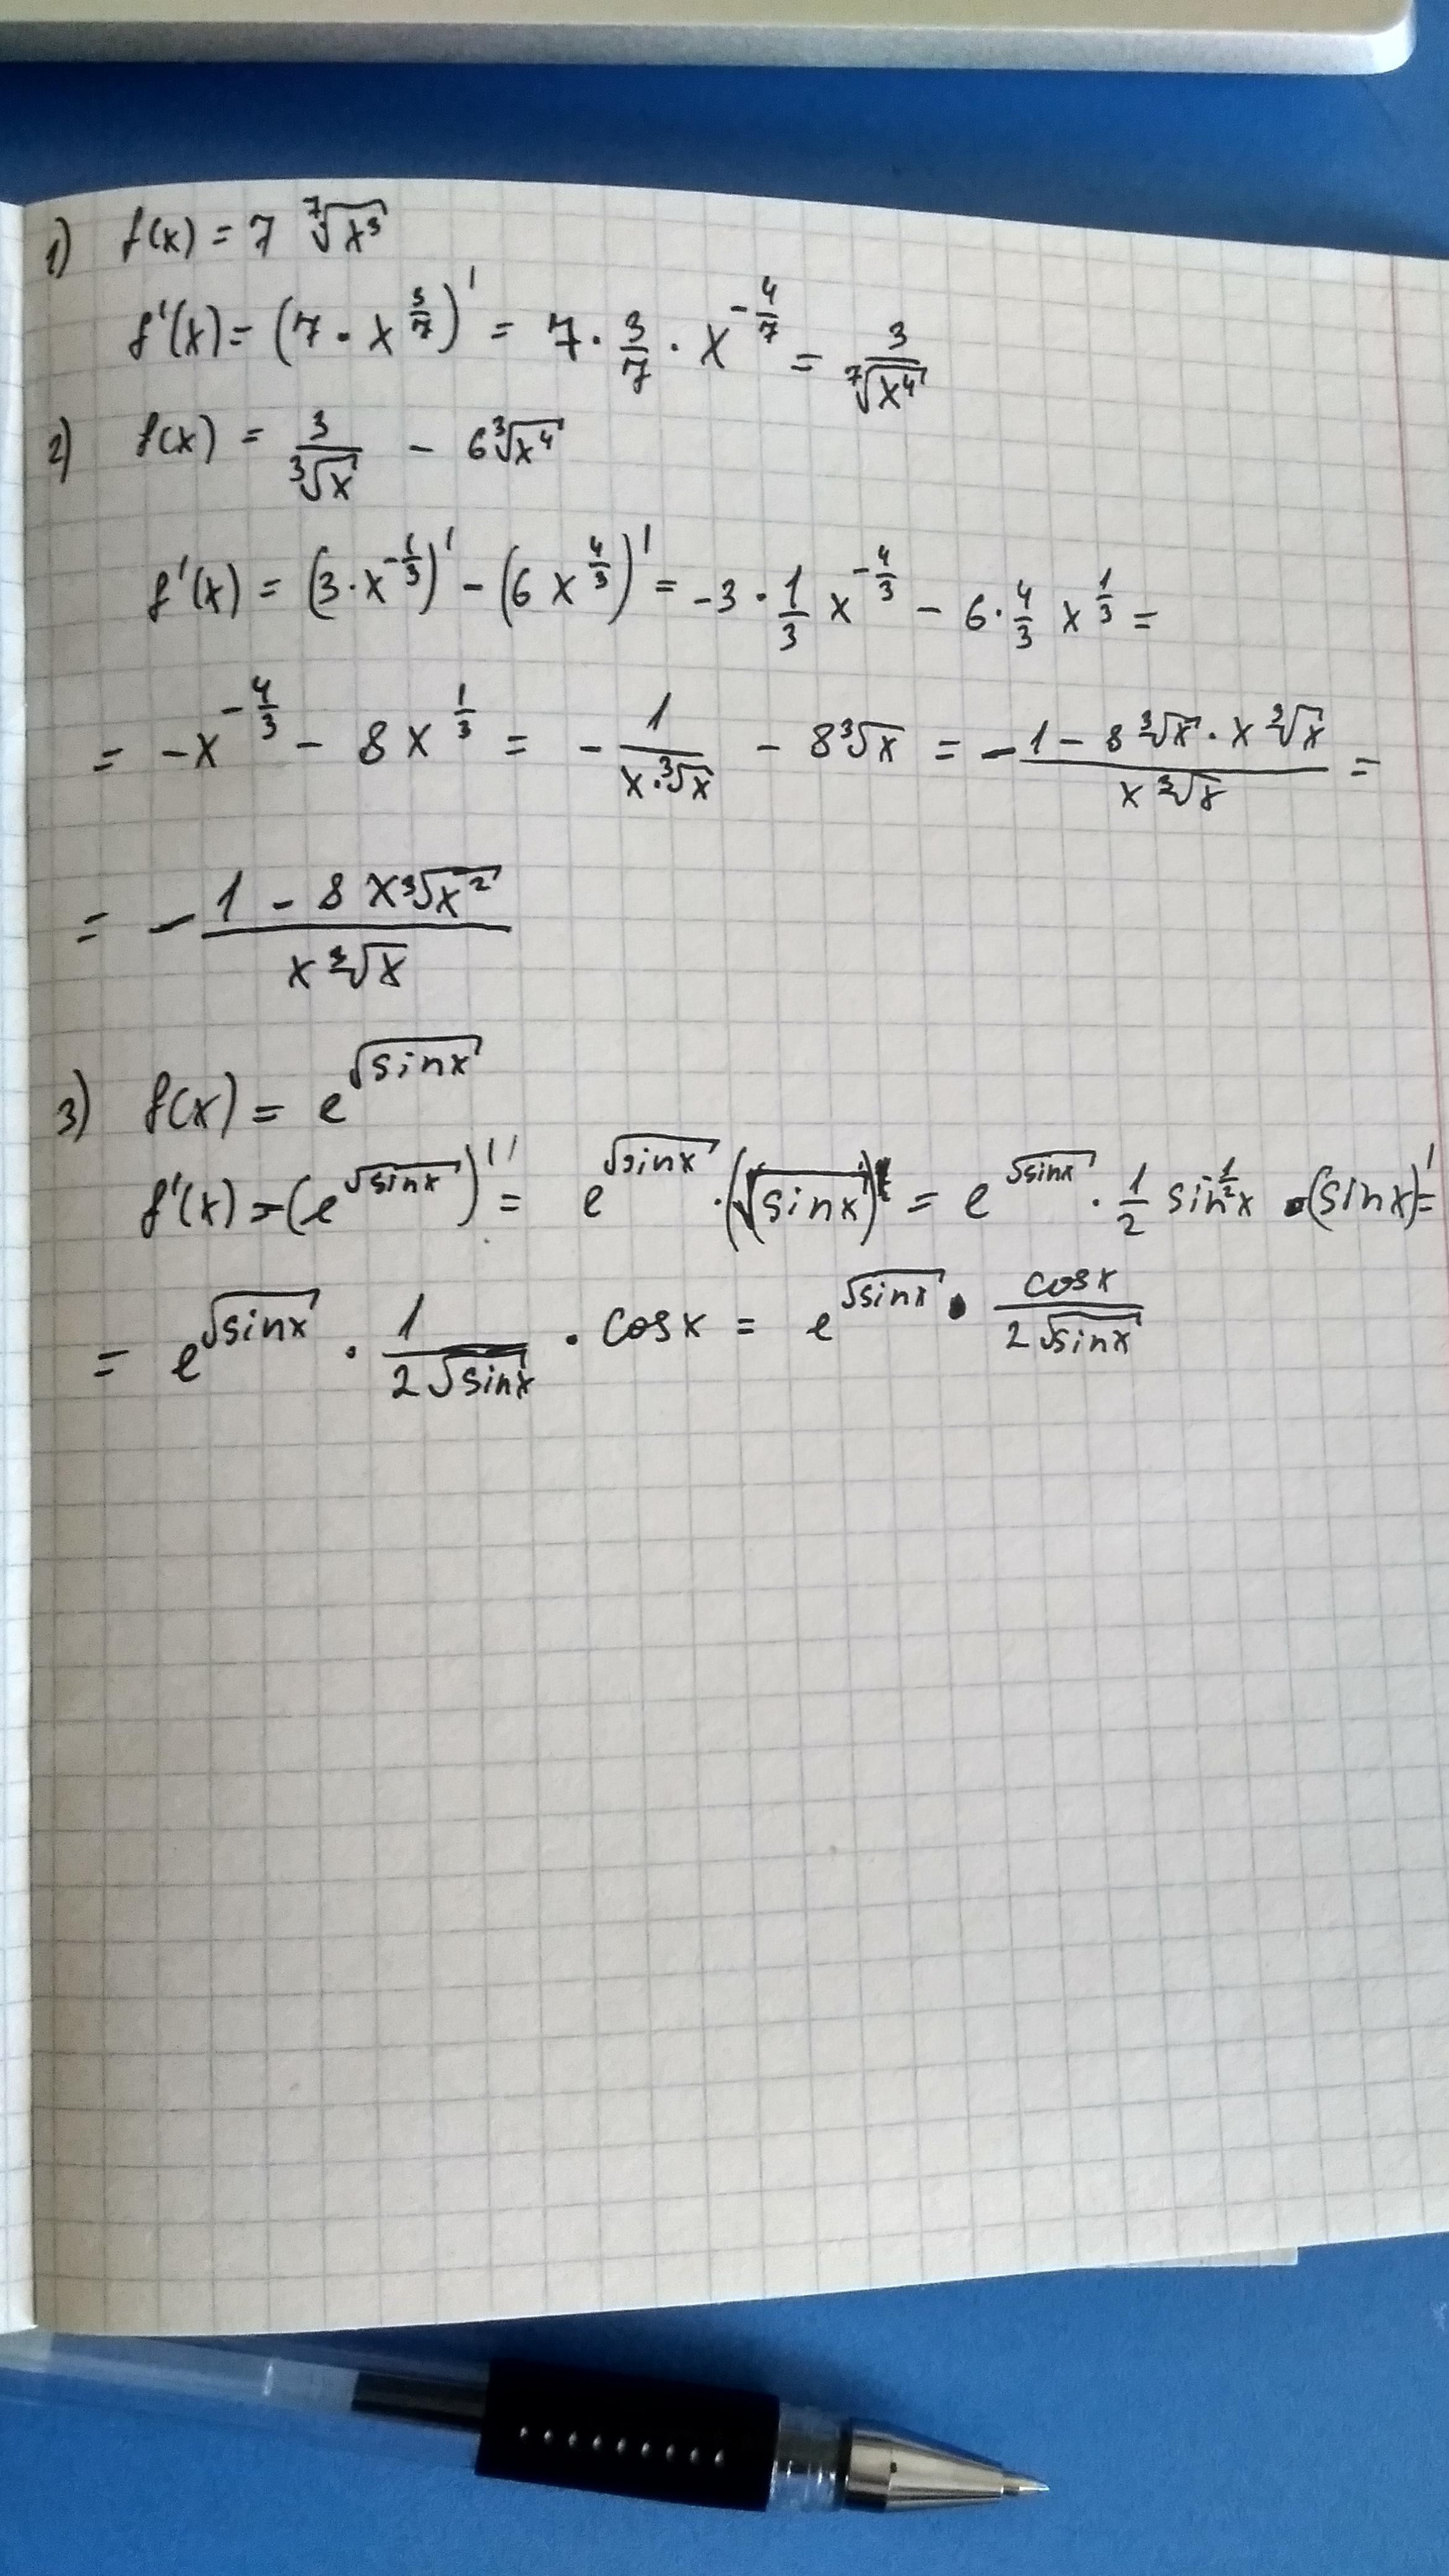 1) f(x) = 7 ⁷√x³
f'(x) = (7 · x^(3/7))' = 7 · 3/7 · x^(-4/7) = 3/⁷√x⁴
2) f(x) = 3/³√x - 6 ³√x⁴
f'(x) = (3·x^(-1/3))' - (6 x^(4/3))' = -3 · 1/3 x^(-4/3) - 6 · 4/3 x^(1/3) =
= -x^(-4/3) - 8 x^(1/3) = - 1/(x·³√x) - 8 ³√x = - (1 - 8 ³√x · x ³√x)/(x ³√x) =
= - (1 - 8 x ³√x²)/(x ³√x)
3) f(x) = e^(√sinx)
f'(x) = (e^(√sinx))'' = e^(√sinx) · (√sinx)' = e^(√sinx) · 1/2 sin^(-1/2)x · (sinx)' =
= e^(√sinx) · 1/(2√sinx) · cosx = e^(√sinx) · cosx/(2√sinx)